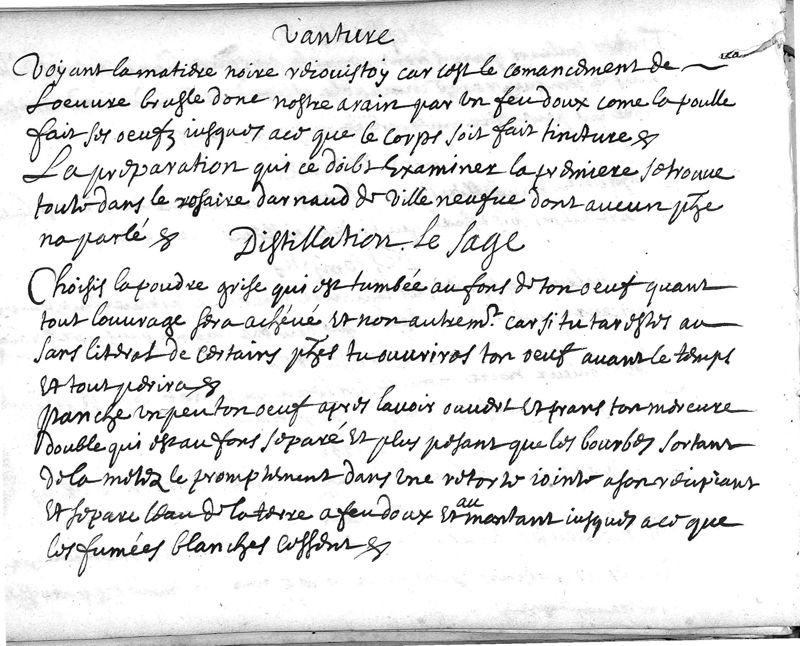 Vanture
Voyant la matiere noire reiouistoy car cest le comancement de
Loeuure brusle donc nostre arain par un feu doux come la poulle
fait ses oeufz iusques a ce que le corps soit fait tincture
La preparation qui ce doibt Examiner la premiere se trouue
toute dans le rosaire darnaud de Ville neufue dont aucun phe
na parlé Distillation Le Sage
Choisis la poudre grise qui est tumbée au fons de ton oeuf quant
tout louurage sera achéué Et non autremt. car si tu tarestes au
sans literal de certains phes tu ouuriras ton oeuf auant le temps
Et tout perira
panche un peu ton oeuf apres lauoir ouuert Et prans ton mercure
double qui est au fons separé Et plus pesant que les bourbes sortant
de la metz le promptement dans une retorte iointe a son recipiant
Et separe leau de la terre a feu doux Et au montant iusques a ce que
les fumées blanches cessent